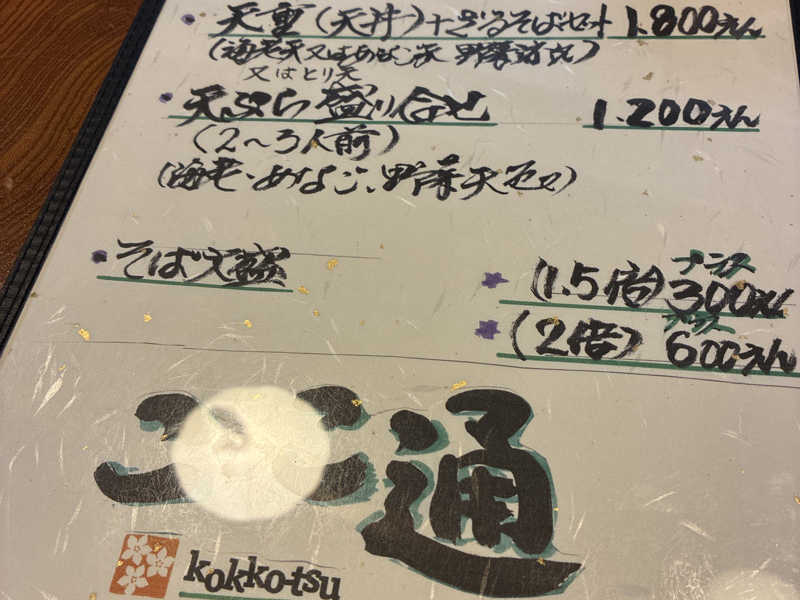 ・天重(天丼)+ざるそばセット 1.800えん
(海老天又はあなご天 野菜済丸)
又はとり天
・天ぷら盛り合せ 1.200えん
(2〜3人前)
(海老・あなご、野菜天など)
・そば大盛 (1.5倍) プラス 300えん
(2倍) プラス 600えん
ここ通
kokko-tsu